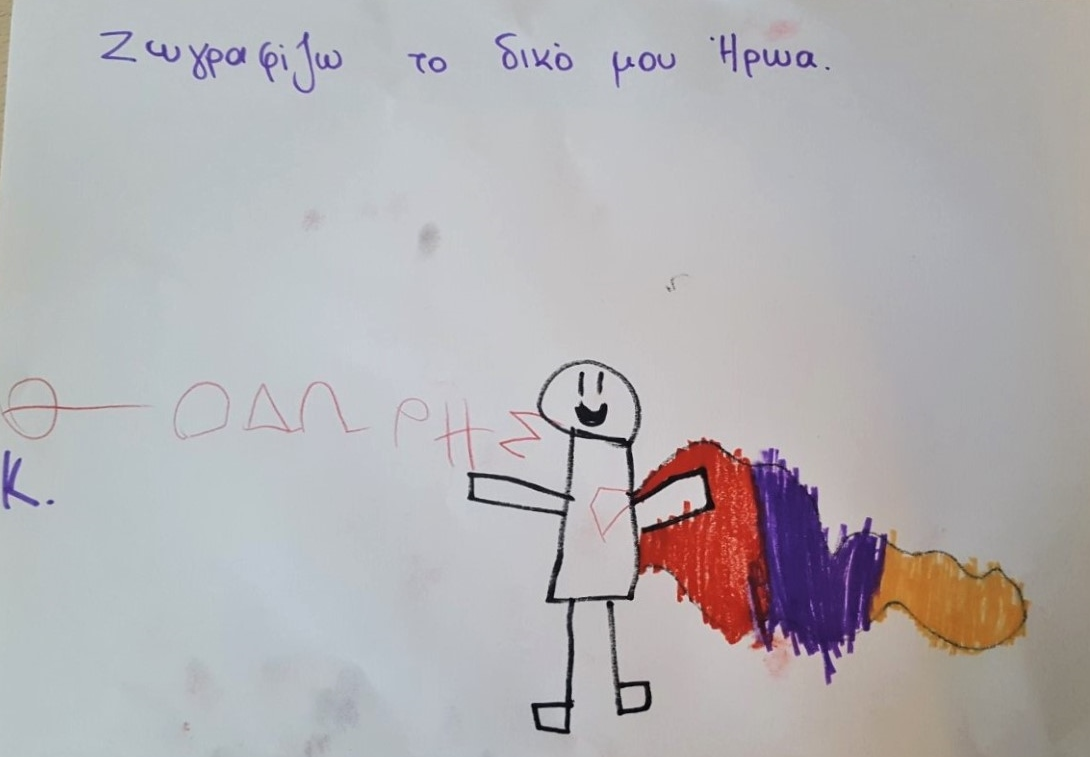 Ζωγραφίζω το δικό μου Ήρωα.
ΘΟΔΩΡΗΣ
Κ.